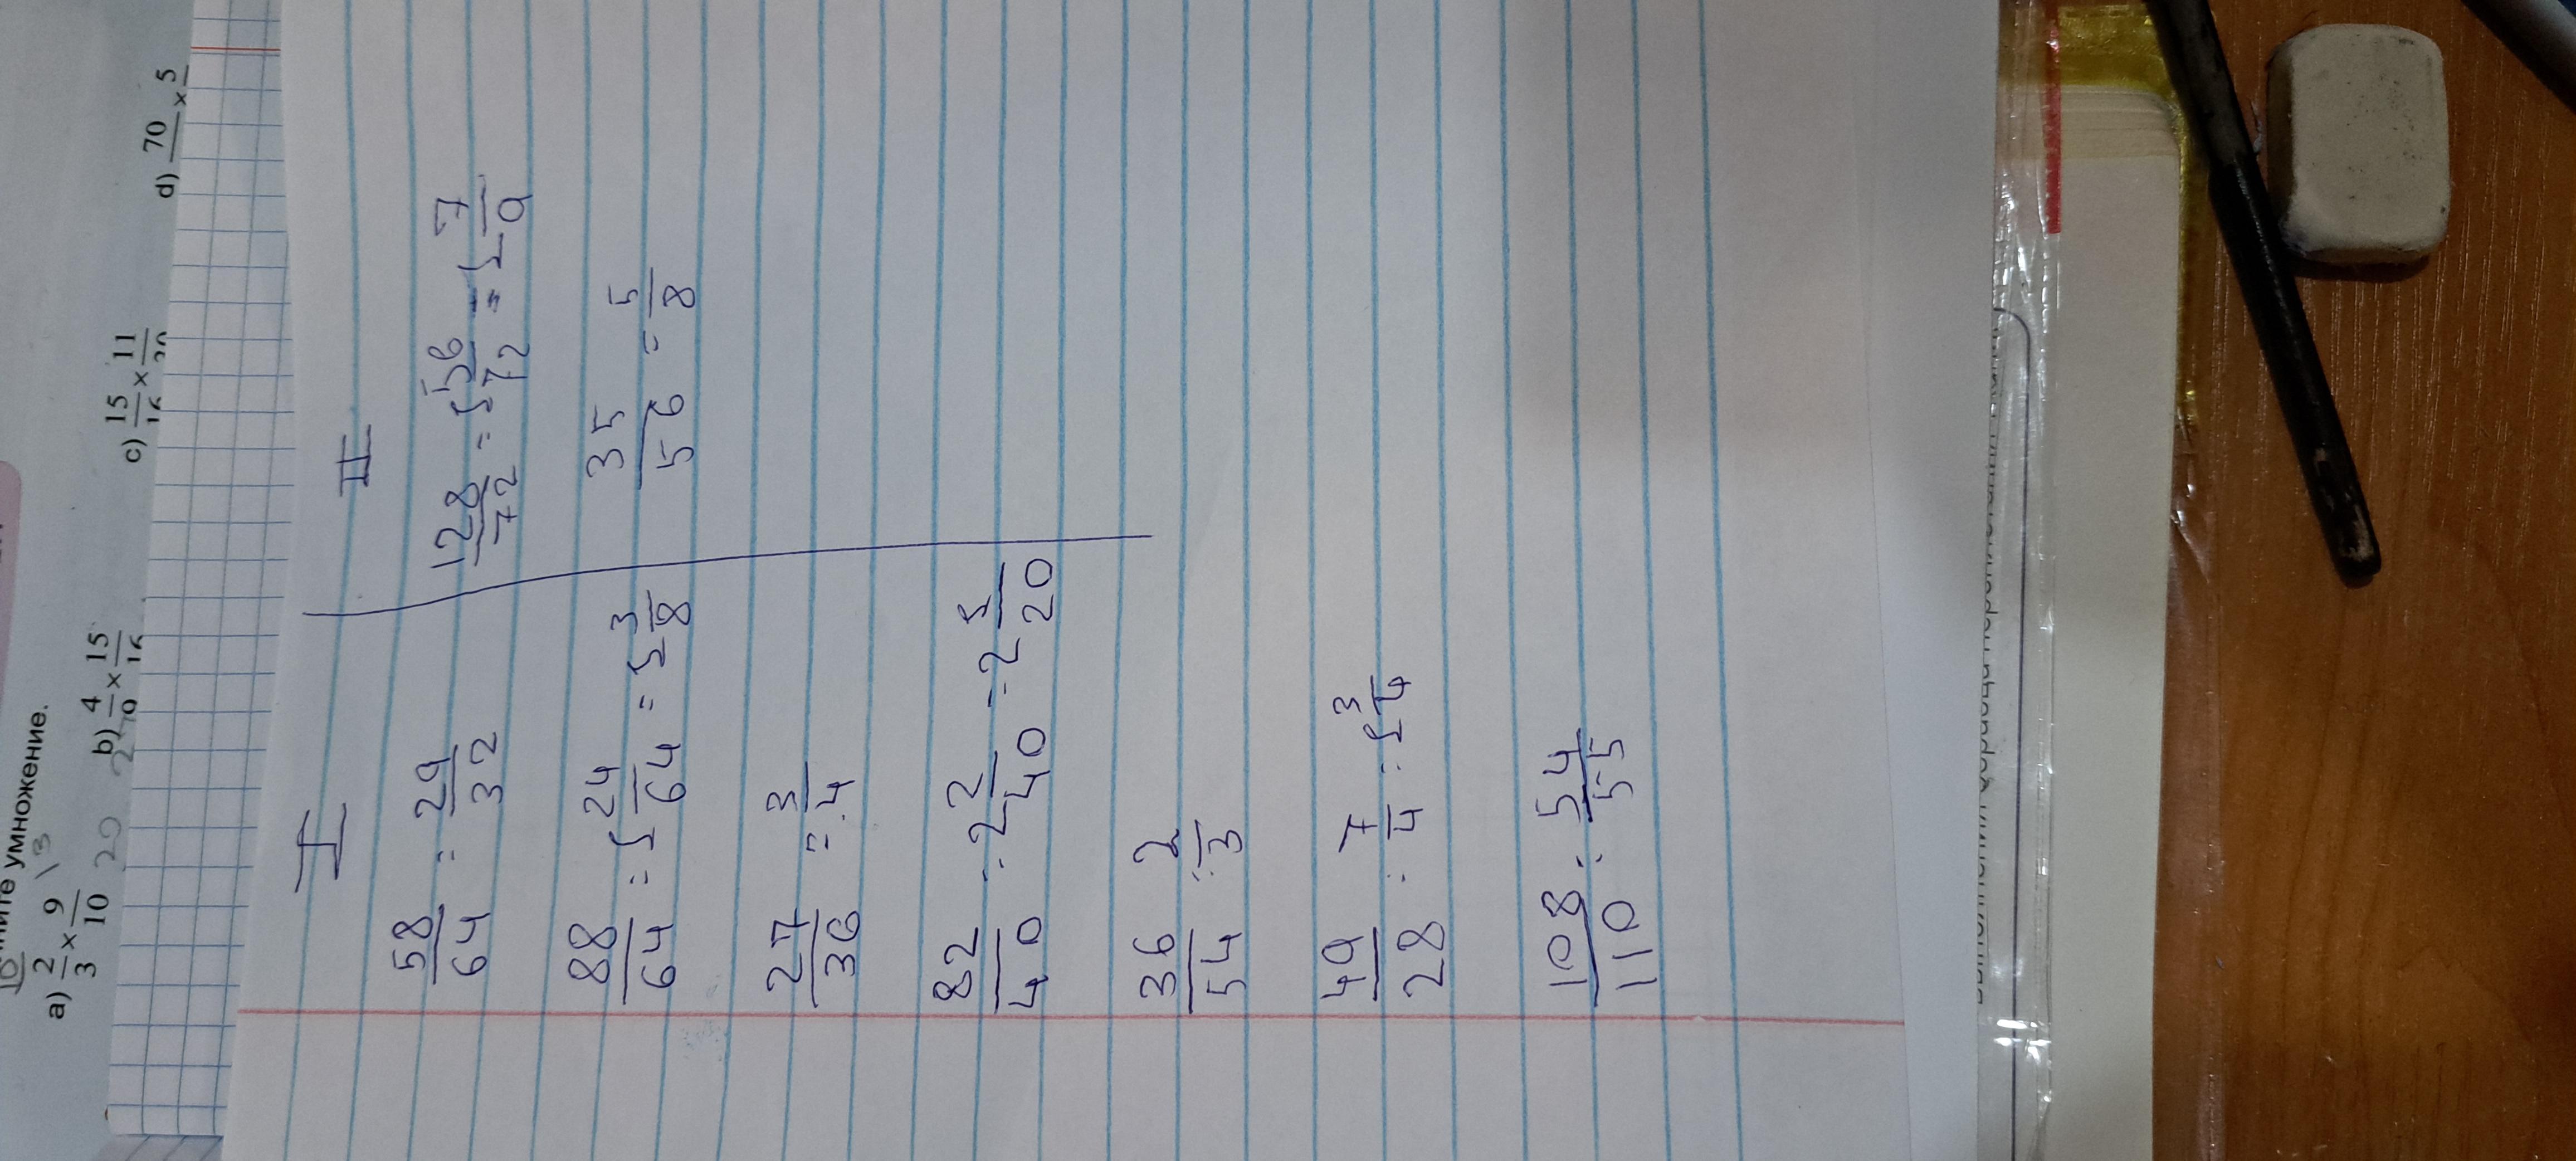 умножение.
a) 2/3 × 9/10 b) 4/9 × 15/16 c) 15/16 × 11/20 d) 70 × 5
I
58/64 = 29/32
88/64 = 1 24/64 = 1 3/8
27/36 = 3/4
82/40 = 2 2/40 = 2 5/20
36/54 = 2/3
49/28 = 7/4 = 1 3/4
108/110 = 54/55
II
128/72 = 1 56/72 = 1 7/9
35/56 = 5/8